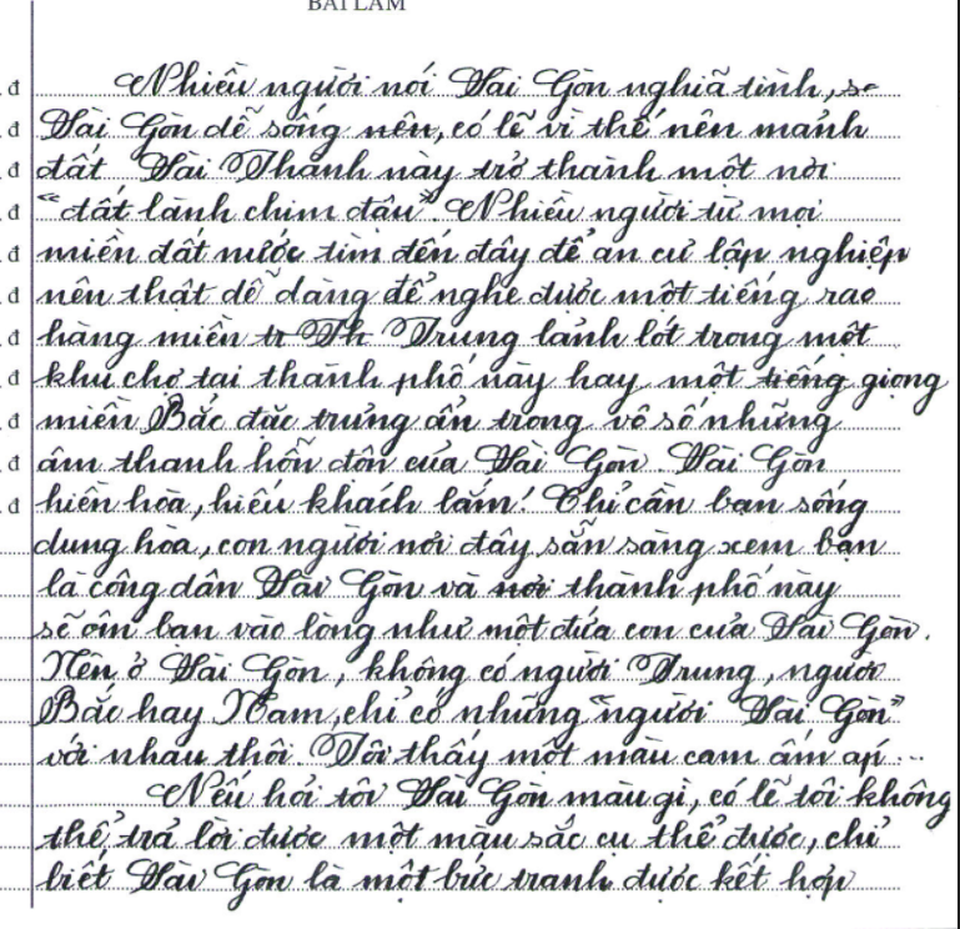 BÀI LÀM
Nhiều người nói Sài Gòn nghĩa tình, se
Sài Gòn dễ sống nên, có lẽ vì thế nên mảnh
đất Sài Thành này trở thành một nơi
"đất lành chim đậu". Nhiều người từ mọi
miền đất nước tìm đến đây để an cư lập nghiệp
nên thật dễ dàng để nghe được một tiếng rao
hàng miền tr Th Trung lảnh lót trong một
khu chợ tại thành phố này hay một tiếng giọng
miền Bắc đặc trưng ẩn trong vô số những
âm thanh hỗn độn của Sài Gòn. Sài Gòn
hiền hòa, hiếu khách lắm! Chỉ cần bạn sống
dung hòa, con người nơi đây sẵn sàng xem bạn
là công dân Sài Gòn và nơi thành phố này
sẽ ôm bạn vào lòng như một đứa con của Sài Gòn.
Nên ở Sài Gòn, không có người Trung, người
Bắc hay Nam, chỉ có những "người Sài Gòn"
với nhau thôi. Tôi thấy một màu cam ấm áp...
Nếu hỏi tôi Sài Gòn màu gì, có lẽ tôi không
thể trả lời được một màu sắc cụ thể được, chỉ
biết Sài Gòn là một bức tranh được kết hợp
đ
đ
đ
đ
đ
đ
đ
đ
đ
đ
đ